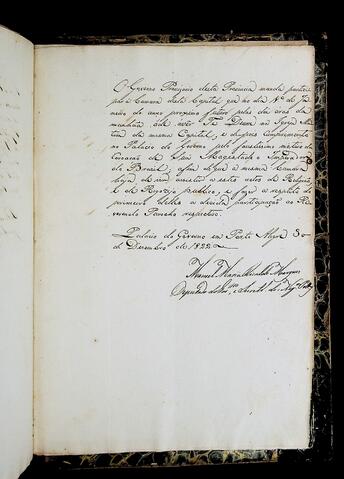 O Governo Provizorio desta Provincia manda participar
á Camara desta Capital que no dia 1º de Ja-
neiro do anno proximo futuro pelas dez oras da
manhãa ade aver Te Deum na Igreja Ma-
triz da mesma Capital, e depois Comprimento
no Palacio do Governo pelo
Coroação de Sua Magestade o Imperador
do Brazil, afim de que a mesma Camara
haja de assistir a estes actos de Religião
e de Regozijo publico, e faça a respeito do
primeiro delles a devida participação ao Re-
verendo Parocho respectivo.
Palacio do Governo em Porto Alegre 30
de Dezembro de 1822
Manoel Maria
Deputado